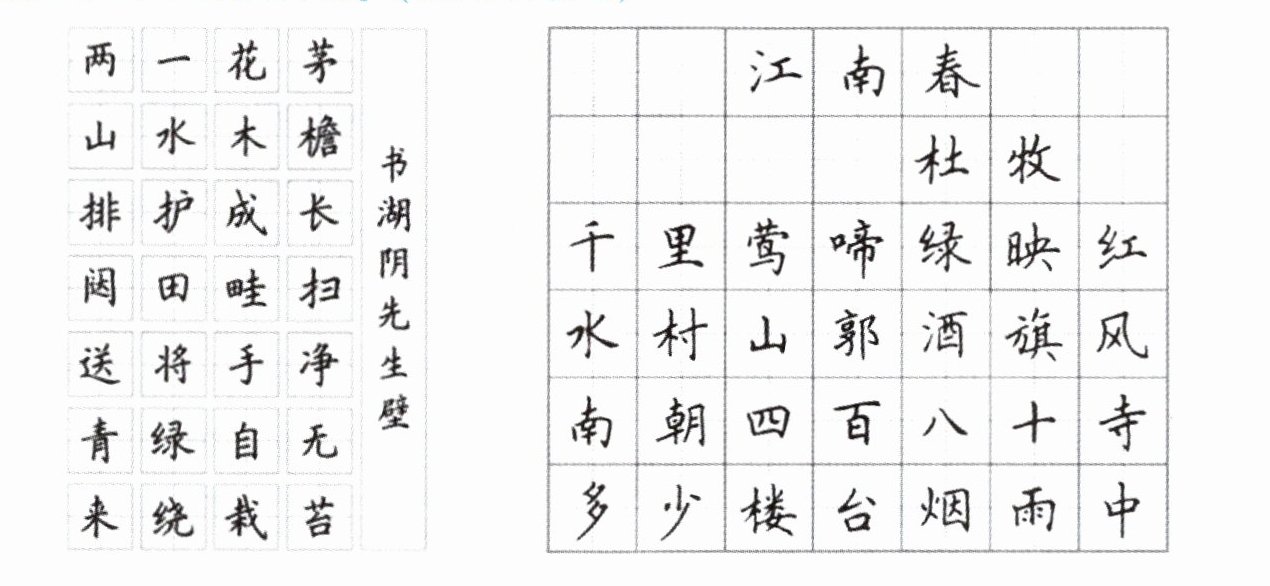 书湖阴先生壁
茅檐长扫净无苔
花木成畦手自栽
一水护田将绿绕
两山排闼送青来
江南春
杜牧
千里莺啼绿映红
水村山郭酒旗风
南朝四百八十寺
多少楼台烟雨中